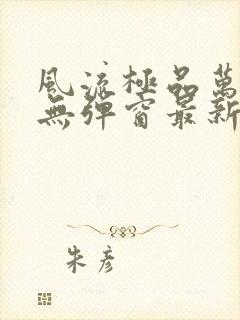 風流極品萬
無彈窗最新
朱彥